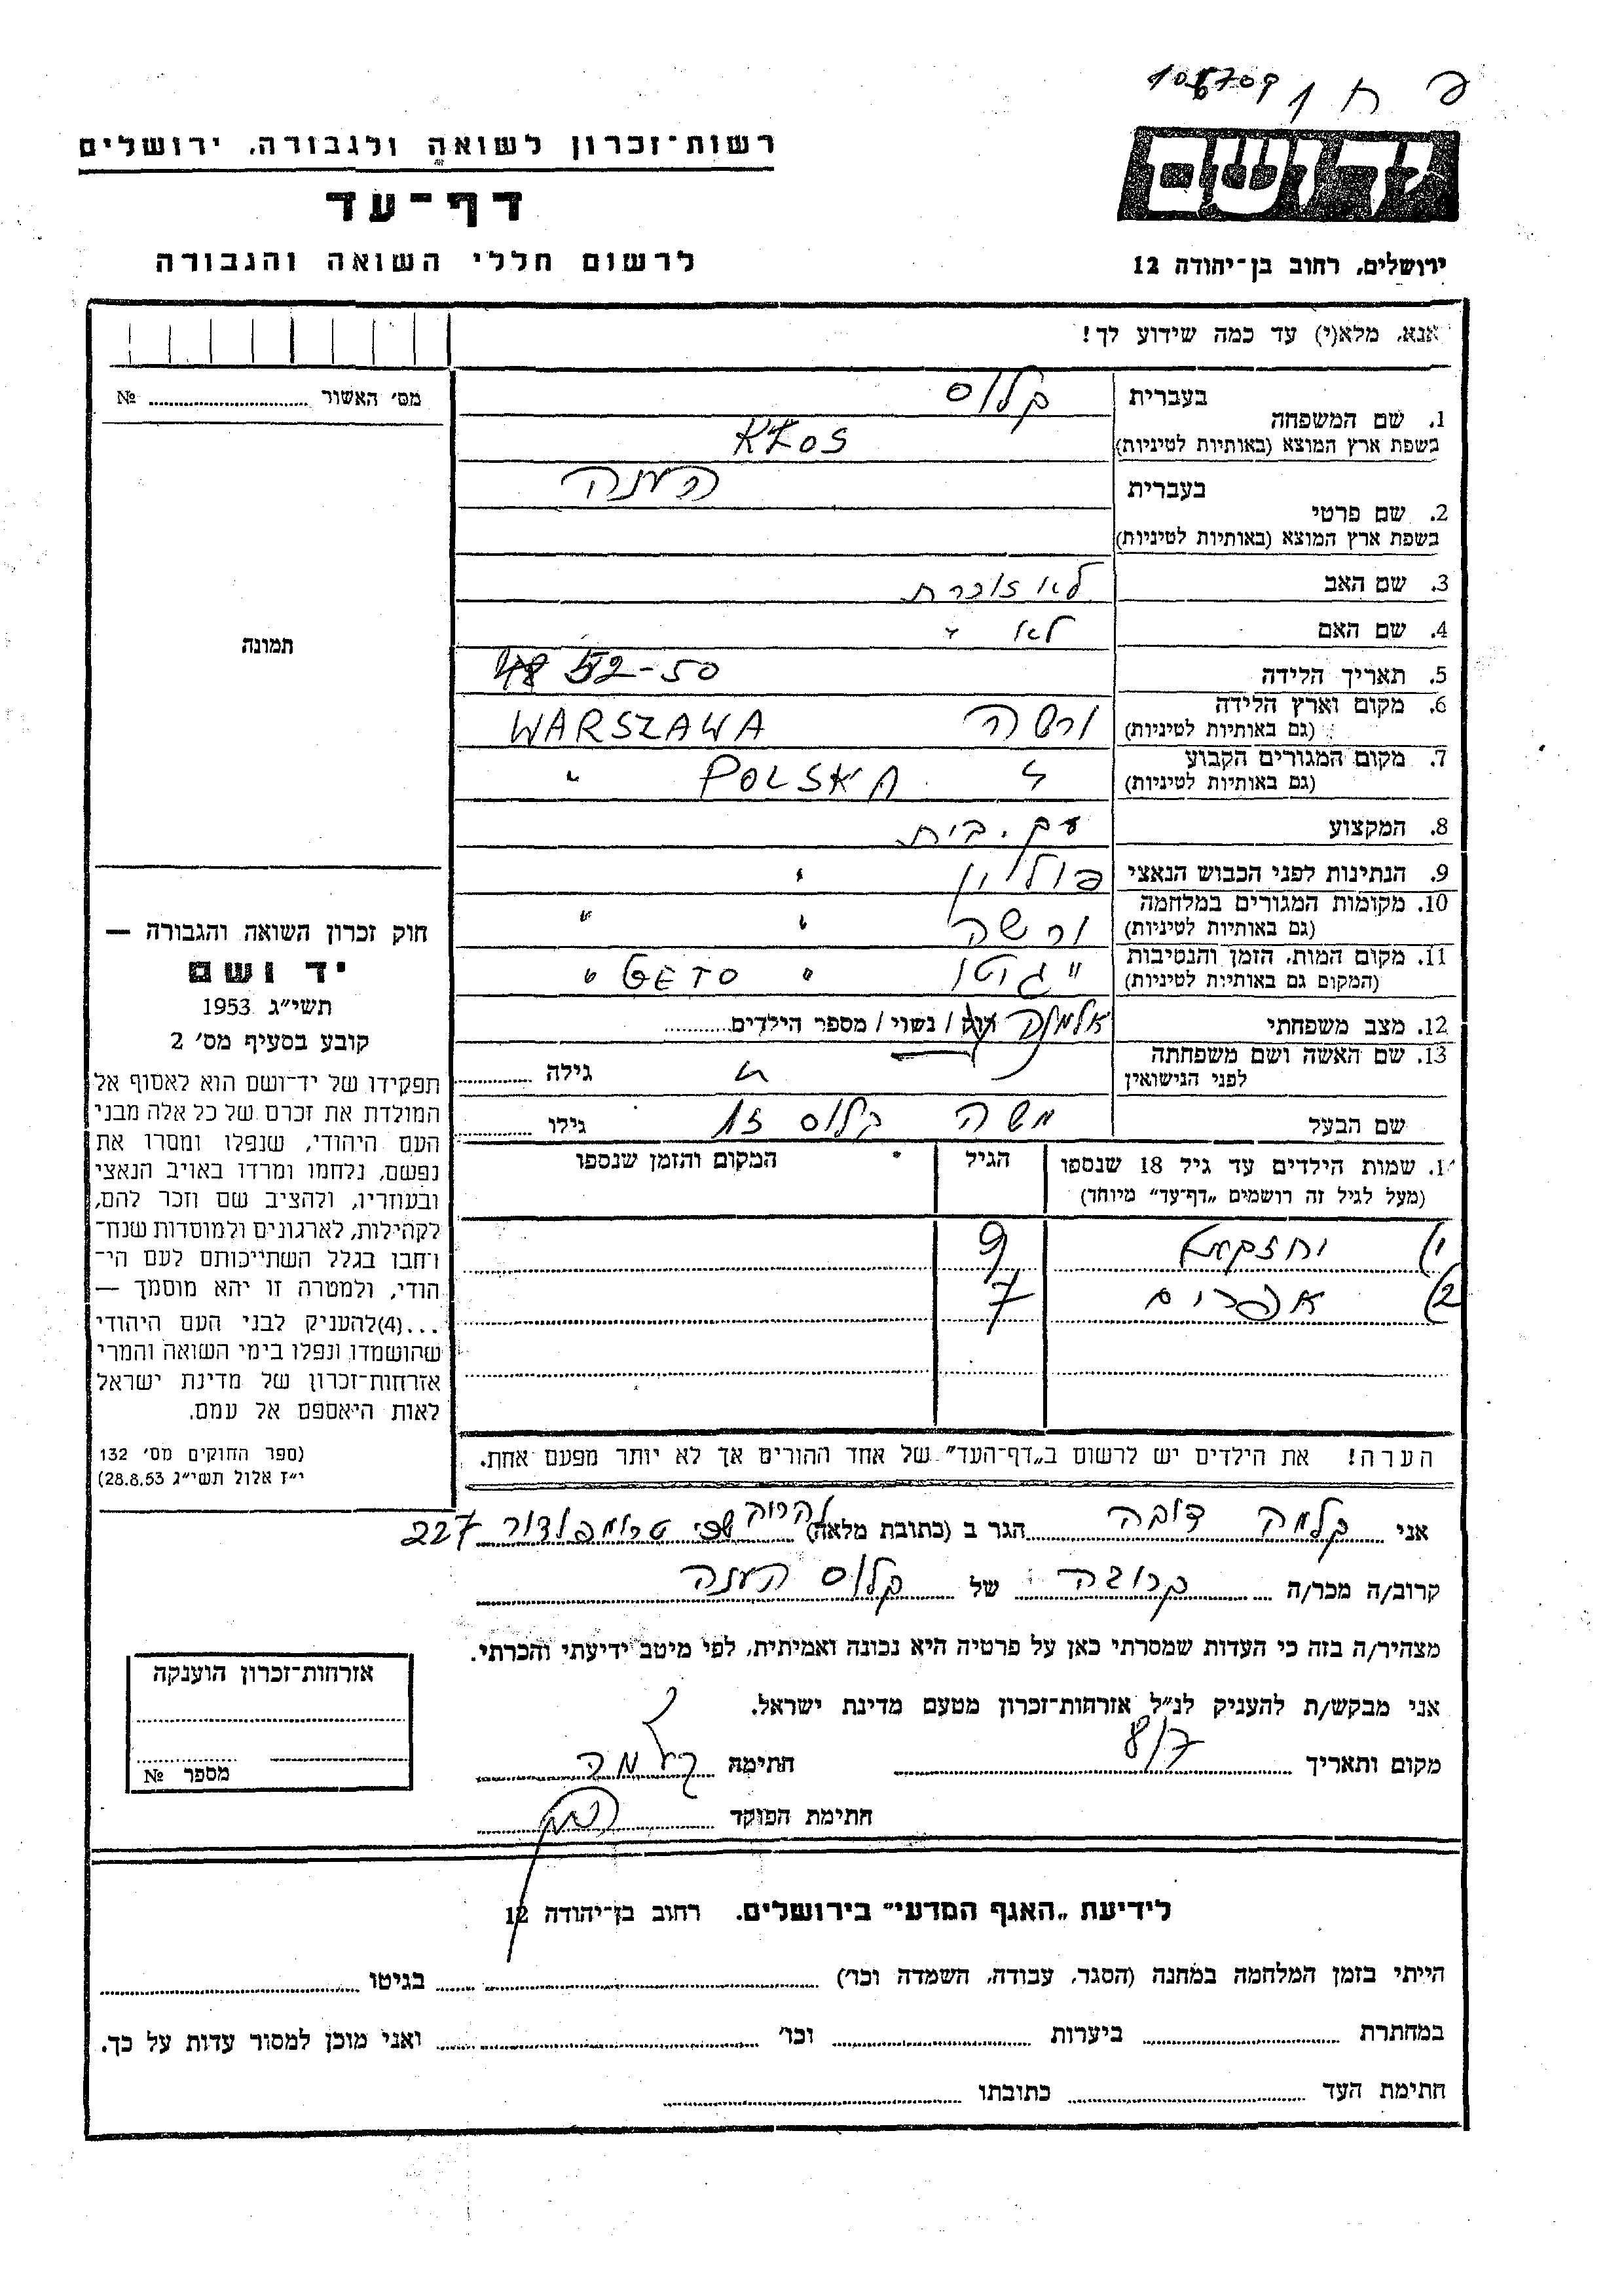 108709
רשות־זכרון לשואה ולגבורה, ירושלים
יד ושם
דף־עד
לרשום חללי השואה והגבורה
ירושלים, רחוב בן־יהודה 12
אנא, מלא(י) עד כמה שידוע לך!
מס׳ האשור № 
1. שם המשפחה
בעברית קלוס
בשפת ארץ המוצא (באותיות לטיניות) KŁOS
2. שם פרטי
בעברית הענה
בשפת ארץ המוצא (באותיות לטיניות)
3. שם האב לא זוכרת
4. שם האם לא "
תמונה
5. תאריך הלידה 52-50
6. מקום וארץ הלידה (גם באותיות לטיניות) ורשה WARSZAWA
7. מקום המגורים הקבוע (גם באותיות לטיניות) " POLSKA "
8. המקצוע עק. בית
9. הנתינות לפני הכבוש הנאצי פולין "
10. מקומות המגורים במלחמה (גם באותיות לטיניות) ורשה " "
11. מקום המות, הזמן והנסיבות (המקום גם באותיות לטיניות) " גוטו " GETO "
12. מצב משפחתי אלמנה רוק / נשוי / מספר הילדים
13. שם האשה ושם משפחתה לפני הנישואין " גילה
שם הבעל משה קלוס ז"ל גילו
שמות הילדים עד גיל 18 שנספו (מעל לגיל זה רושמים „דף־עד” מיוחד) הגיל המקום והזמן שנספו
1) 9
2) אפרים 7
הערה! את הילדים יש לרשום ב„דף־העד” של אחד ההורים אך לא יותר מפעם אחת.
חוק זכרון השואה והגבורה —
יד ושם
תשי״ג 1953
קובע בסעיף מס׳ 2
תפקידו של יד־ושם הוא לאסוף אל
המולדת את זכרם של כל אלה מבני
העם היהודי, שנפלו ומסרו את
נפשם, נלחמו ומרדו באויב הנאצי
ובעוזריו, ולהציב שם וזכר להם,
לקהילות, לארגונים ולמוסדות שנח־
רבו בגלל השתייכותם לעם הי־
הודי, ולמטרה זו יהא מוסמך —
...(4) להעניק לבני העם היהודי
שהושמדו ונפלו בימי השואה והמרי
אזרחות־זכרון של מדינת ישראל
לאות היאספם אל עמם.
(ספר החוקים מס׳ 132
י״ז אלול תשי״ג 28.8.53)
אני קלמה דובה הגר ב (כתובת מלאה) טרומפלדור 227
קרוב/ה מכר/ה קרובה של קלוס הענה
מצהיר/ה בזה כי העדות שמסרתי כאן על פרטיה היא נכונה ואמיתית, לפי מיטב ידיעתי והכרתי.
אני מבקש/ת להעניק לנ״ל אזרחות־זכרון מטעם מדינת ישראל.
מקום ותאריך חתימה קלמה
חתימת הפוקד
אזרחות־זכרון הוענקה
מספר №
לידיעת „האגף המדעי” בירושלים, רחוב בן־יהודה 12
הייתי בזמן המלחמה במחנה (הסגר, עבודה, השמדה וכו׳) בגיטו
במחתרת ביערות וכו׳ ואני מוכן למסור עדות על כך.
חתימת העד כתובתו